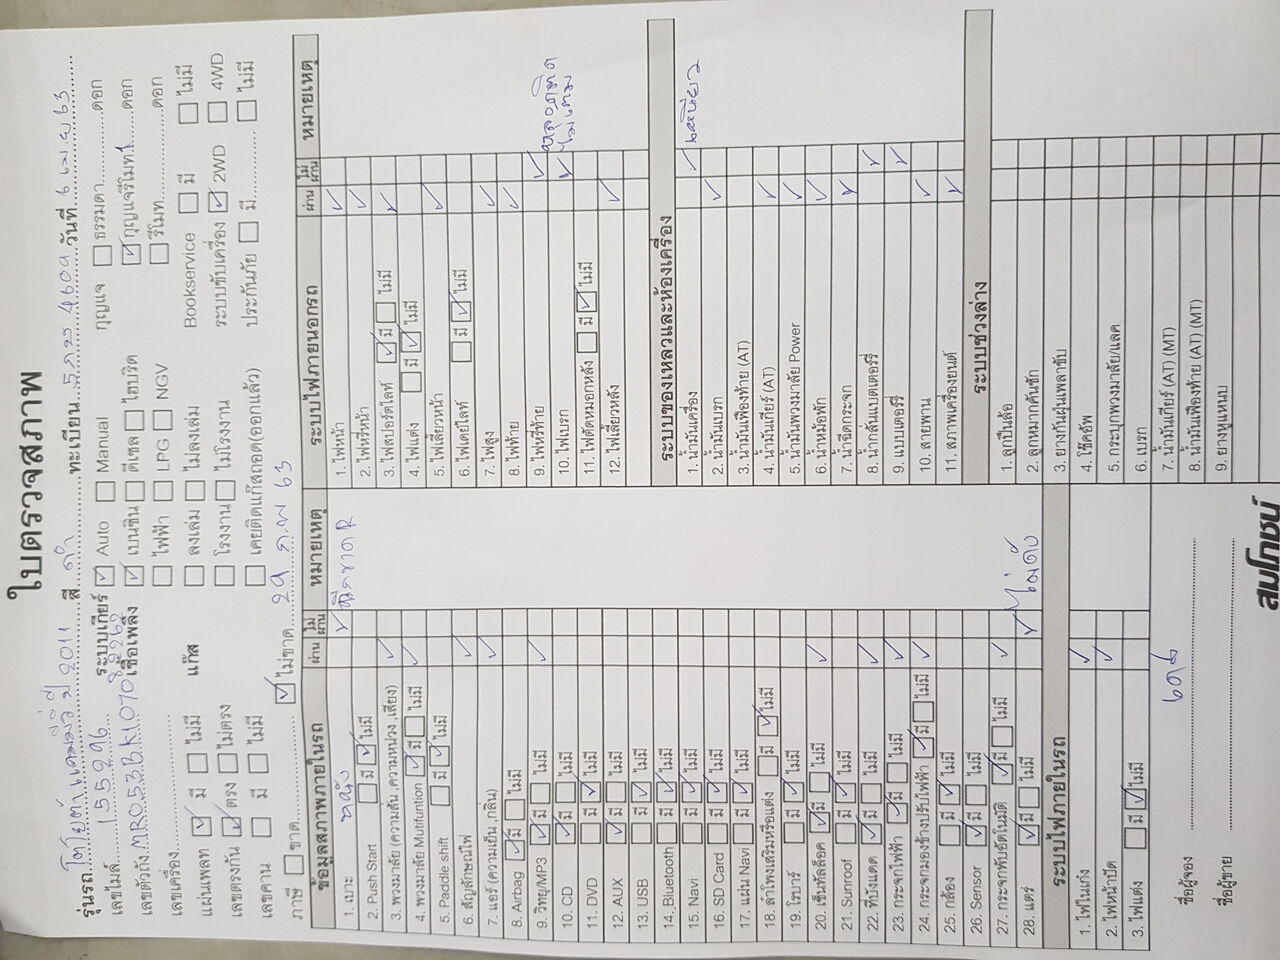 ใบตรวจสภาพ
รุ่นรถ โตโยต้าแคมรี่ ปี 2011 สี ดำ ทะเบียน 4609 วันที่ 6 เมย 63
เลขไมล์ 155996 ระบบเกียร์ ☑ Auto ☐ Manual กุญแจ ☐ ธรรมดา ดอก
เลขตัวถัง MR053BK1070 เชื้อเพลิง ☑ เบนซิน ☐ ดีเซล ☐ ไฮบริด ☑ กุญแจรีโมท 1 ดอก
เลขเครื่อง ☐ ไฟฟ้า ☐ LPG ☐ NGV ☐ รีโมท ดอก
แผ่นเพลท ☑ มี ☐ ไม่มี แก๊ส ☐ ลงเล่ม ☐ ไม่ลงเล่ม Bookservice ☐ มี ☐ ไม่มี
เลขตรงกัน ☑ ตรง ☐ ไม่ตรง ☐ โรงงาน ☐ ไม่โรงงาน ระบบขับเครื่อง ☑ 2WD ☐ 4WD
เลขคาน ☐ มี ☐ ไม่มี ☐ เคยติดแก๊สถอด(ออกแล้ว) ประกันภัย ☐ มี ☐ ไม่มี
ภาษี ☐ ขาด ☑ ไม่ขาด 29 ก.พ 63
ข้อมูลสภาพภายในรถ ผ่าน ไม่ผ่าน หมายเหตุ
1. เบาะ หนัง ✓ ฉีกขาด R
2. Push Start ☐ มี ☑ ไม่มี
3. พวงมาลัย (ความสั่น ,ความหน่วง ,เสียง) ✓
4. พวงมาลัย Mutifuntion ☑ มี ☐ ไม่มี ✓
5. Paddle shift ☐ มี ☑ ไม่มี
6. สัญลักษณ์ไฟ ✓
7. แอร์ (ความเย็น ,กลิ่น) ✓
8. Airbag ☑ มี ☐ ไม่มี
9. วิทยุ/MP3 ☑ มี ☐ ไม่มี ✓
10. CD ☑ มี ☐ ไม่มี
11. DVD ☐ มี ☑ ไม่มี
12. AUX ☑ มี ☐ ไม่มี
13. USB ☐ มี ☑ ไม่มี
14. Bluetooth ☐ มี ☑ ไม่มี
15. Navi ☐ มี ☑ ไม่มี
16. SD Card ☐ มี ☑ ไม่มี
17. แผ่น Navi ☐ มี ☑ ไม่มี
18. ลำโพงเสริมหรือแต่ง ☐ มี ☑ ไม่มี
19. โรบาร์ ☐ มี ☑ ไม่มี
20. เซ็นทัลล็อค ☑ มี ☐ ไม่มี ✓
21. Sunroof ☐ มี ☑ ไม่มี
22. ที่บังแดด ☑ มี ☐ ไม่มี ✓
23. กระจกไฟฟ้า ☑ มี ☐ ไม่มี ✓
24. กระจกมองข้างปรับไฟฟ้า ☑ มี ☐ ไม่มี ✓
25. กล้อง ☐ มี ☑ ไม่มี
26. Sensor ☑ มี ☐ ไม่มี
27. กระจกพับอัตโนมัติ ☑ มี ☐ ไม่มี ✓
28. แตร์ ☑ มี ☐ ไม่มี ✓ ไม่ดัง
ระบบไฟภายในรถ
1. ไฟในเก๋ง ✓
2. ไฟหน้าปัด ✓
3. ไฟแต่ง ☐ มี ☑ ไม่มี
ชื่อผู้จอง
ชื่อผู้ขาย
ระบบไฟภายนอกรถ ผ่าน ไม่ผ่าน หมายเหตุ
1. ไฟหน้า ✓
2. ไฟหรี่หน้า ✓
3. ไฟสปอร์ตไลท์ ☑ มี ☐ ไม่มี ✓
4. ไฟแต่ง ☐ มี ☑ ไม่มี
5. ไฟเลี้ยวหน้า ✓
6. ไฟเดย์ไลท์ ☐ มี ☑ ไม่มี
7. ไฟสูง ✓
8. ไฟท้าย ✓
9. ไฟหรี่ท้าย ✓
10. ไฟเบรก ✓
11. ไฟตัดหมอกหลัง ☐ มี ☑ ไม่มี
12. ไฟเลี้ยวหลัง ✓
ระบบของเหลวและห้องเครื่อง
1. น้ำมันเครื่อง ✓ เหนียว
2. น้ำมันเบรก ✓
3. น้ำมันเฟืองท้าย (AT)
4. น้ำมันเกียร์ (AT) ✓
5. น้ำมันพวงมาลัย Power ✓
6. น้ำหม้อพัก ✓
7. น้ำฉีดกระจก ✓
8. น้ำกลั่นแบตเตอร์รี่ ✓
9. แบบเตอร์รี่ ✓
10. สายพาน ✓
11. สภาพเครื่องยนต์ ✓
ระบบช่วงล่าง
1. ลูกปืนล้อ
2. ลูกหมากคันชัก
3. ยางกันฝุ่นเพลาขับ
4. โช๊คอัพ
5. กระบุกพวงมาลัย/แลค
6. เบรก
7. น้ำมันเกียร์ (AT) (MT)
8. น้ำมันเฟืองท้าย (AT) (MT)
9. ยางหูแหนบ
สมโภชน์